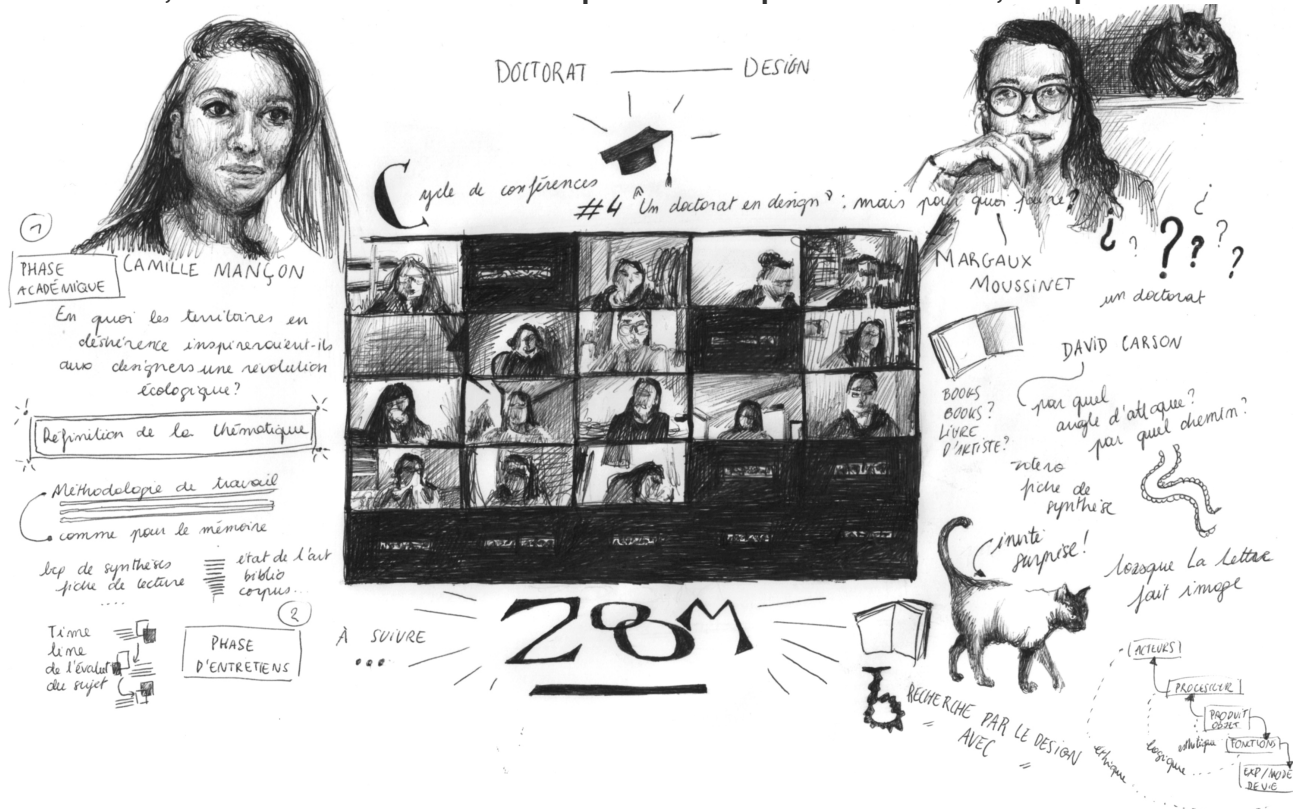 DOCTORAT — DESIGN
Cycle de conférences
#4 "Un doctorat en design" : mais pour quoi faire?
1
PHASE
ACADÉMIQUE
CAMILLE MANÇON
En quoi les territoires en
déshérence inspireraient-ils
aux designers une révolution
écologique?
Définition de la thématique
Méthodologie de travail
comme pour le mémoire
bcp de synthèses
fiche de lecture
....
état de l'art
biblio
corpus...
2
Time
line
de l'évolut
du sujet
PHASE
D'ENTRETIENS
À SUIVRE
...
ZOOM
MARGAUX
MOUSSINET
¿ ? ? ? ¿ ? ?
un doctorat
DAVID CARSON
BOOKS
BOOKS?
LIVRE
D'ARTISTE?
par quel
angle d'attaque?
par quel chemin?
fiche de
synthèse
invité
surprise!
lorsque La lettre
fait image
b
RECHERCHE PAR LE DESIGN
" AVEC "
ACTEURS
PROCESSUS
PRODUIT
OBJET
FONCTIONS
EXP/MODE
DE VIE
éthique
logique
esthétique